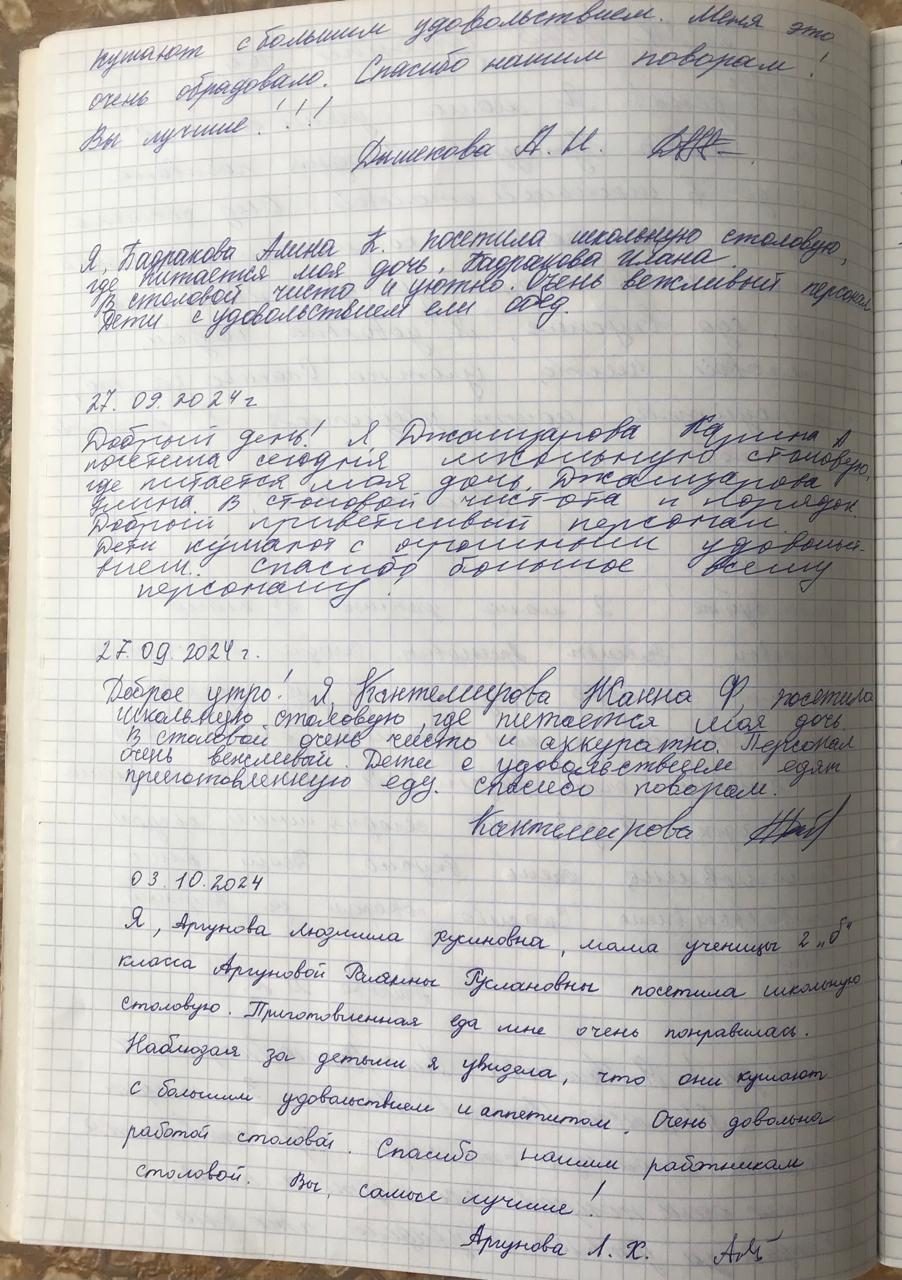 кушают с большим удовольствием. Меня это
очень обрадовало. Спасибо нашим поварам!
Вы лучшие!!!
Дышекова А. Н.
Я, Бадракова Алина К. посетила школьную столовую,
где питается моя дочь, Бадракова
В столовой чисто и уютно. Очень вежливый персонал
Дети с удовольствием ели обед.
27.09.2024г
Добрый день! Я Джамурзова Карина А
посетила сегодня школьную столовую,
где питается моя дочь
В столовой чистота и порядок.
Добрый приветливый персонал.
Дети кушают с огромным удовольст-
вием. Спасибо большое всему
персоналу!
27.09.2024г.
Доброе утро! Я, Кантемирова Жанна Ф, посетила
школьную столовую, где питается моя дочь
В столовой очень чисто и аккуратно. Персонал
очень вежливый. Дети с удовольствием едят
приготовленную еду. Спасибо поварам.
Кантемирова
03.10.2024
Я, Аргунова Людмила Хусиновна, мама ученицы 2 „б"
класса Аргуновой Руслановны посетила школьную
столовую. Приготовленная еда мне очень понравилась.
Наблюдая за детьми я увидела, что они кушают
с большим удовольствием и аппетитом. Очень довольна
работой столовой. Спасибо нашим работникам
столовой. Вы, самые лучшие!
Аргунова Л. Х.